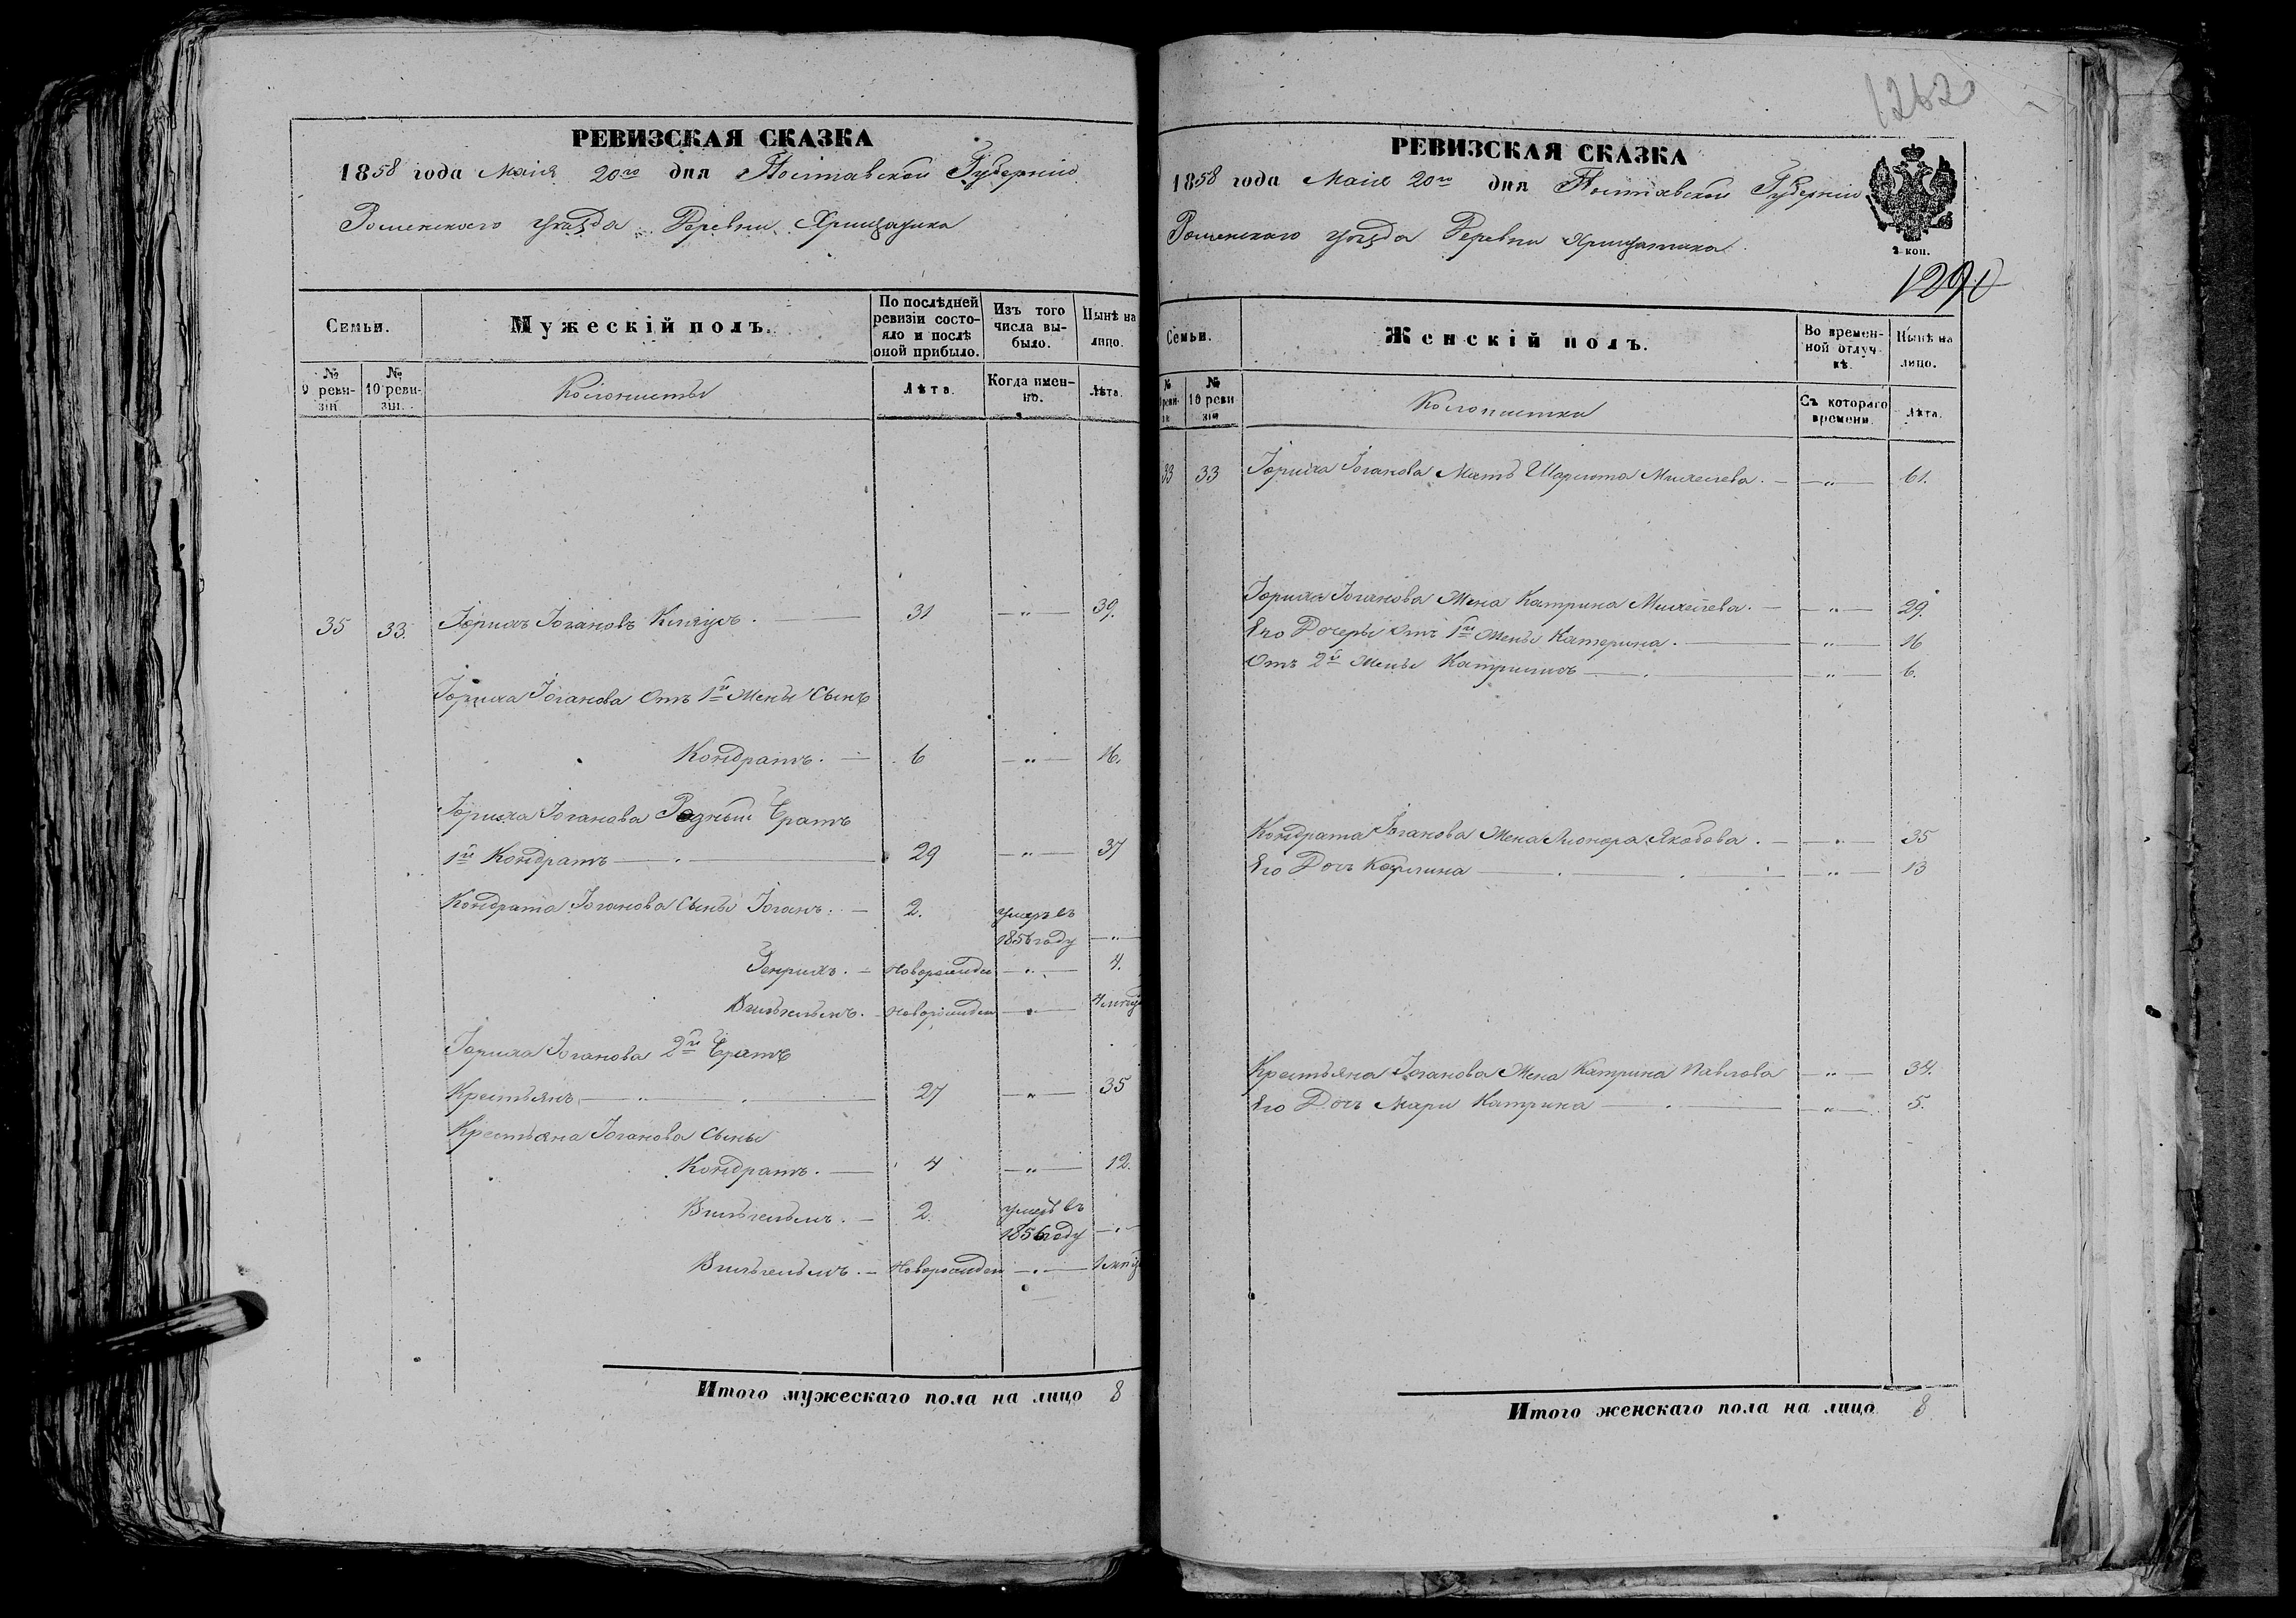 РЕВИЗСКАЯ СКАЗКА
1858 года Маія 20го дня Полтавской Губерніи
Роменского уѣзда Деревни
Семьи.
Мужескій полъ.
По послѣдней ревизіи состояло и послѣ оной прибыло.
Изъ того числа выбыло.
Нынѣ на лицо.
№ 9 ревизіи.
№ 10 ревизіи.
Колонисты
Лѣта.
Когда именно.
Лѣта.
35 33. Іогановъ 31 — „ — 39.
Іоганова Отъ 1й Жены Сынъ
Кондратъ. — 6 — „ — 16.
Іоганова Родный Братъ
1й Кондратъ — 29 — „ — 37
Кондрата Іоганова Сыны Іоганъ. — 2. умеръ въ
1856 году — „ —
Генрихъ. — Новорожден — „ — 4.
Вильгельмъ. Новорожден — „ —
Іоганова 2й Братъ
Крестьянъ — 27 — „ — 35
Крестьяна Іоганова Сыны
Кондратъ. — 4 — „ — 12.
Вильгельмъ. — 2. умеръ въ
1856 году — „ —
Вильгельмъ. — Новорожден — „ —
Итого мужескаго пола на лицо 8
1262
РЕВИЗСКАЯ СКАЗКА
1858 года Маія 20го дня Полтавской Губерніи
Роменского уѣзда Деревни
2 коп.
1290
Семьи.
Женскій полъ.
Во временной отлучкѣ.
Нынѣ на лицо.
№ 9 ревизіи
№ 10 ревизіи
Колонистки
Съ котораго времени.
Лѣта.
33 33 Іоганова Мать Шарлота Михелева. — „ — 61.
Іоганова Жена Катрина Михелева. — „ — 29.
Его Дочеры Отъ 1й Жены Катерина. — „ — 16
Отъ 2й Жены — „ — 6.
Кондрата Іоганова Жена Якобова. — „ — 35
Его Дочь — „ — 13
Крестьяна Іоганова Жена Катрина Павлова — „ — 34.
Его Дочь Мари Катрина — „ — 5.
Итого женскаго пола на лицо 8